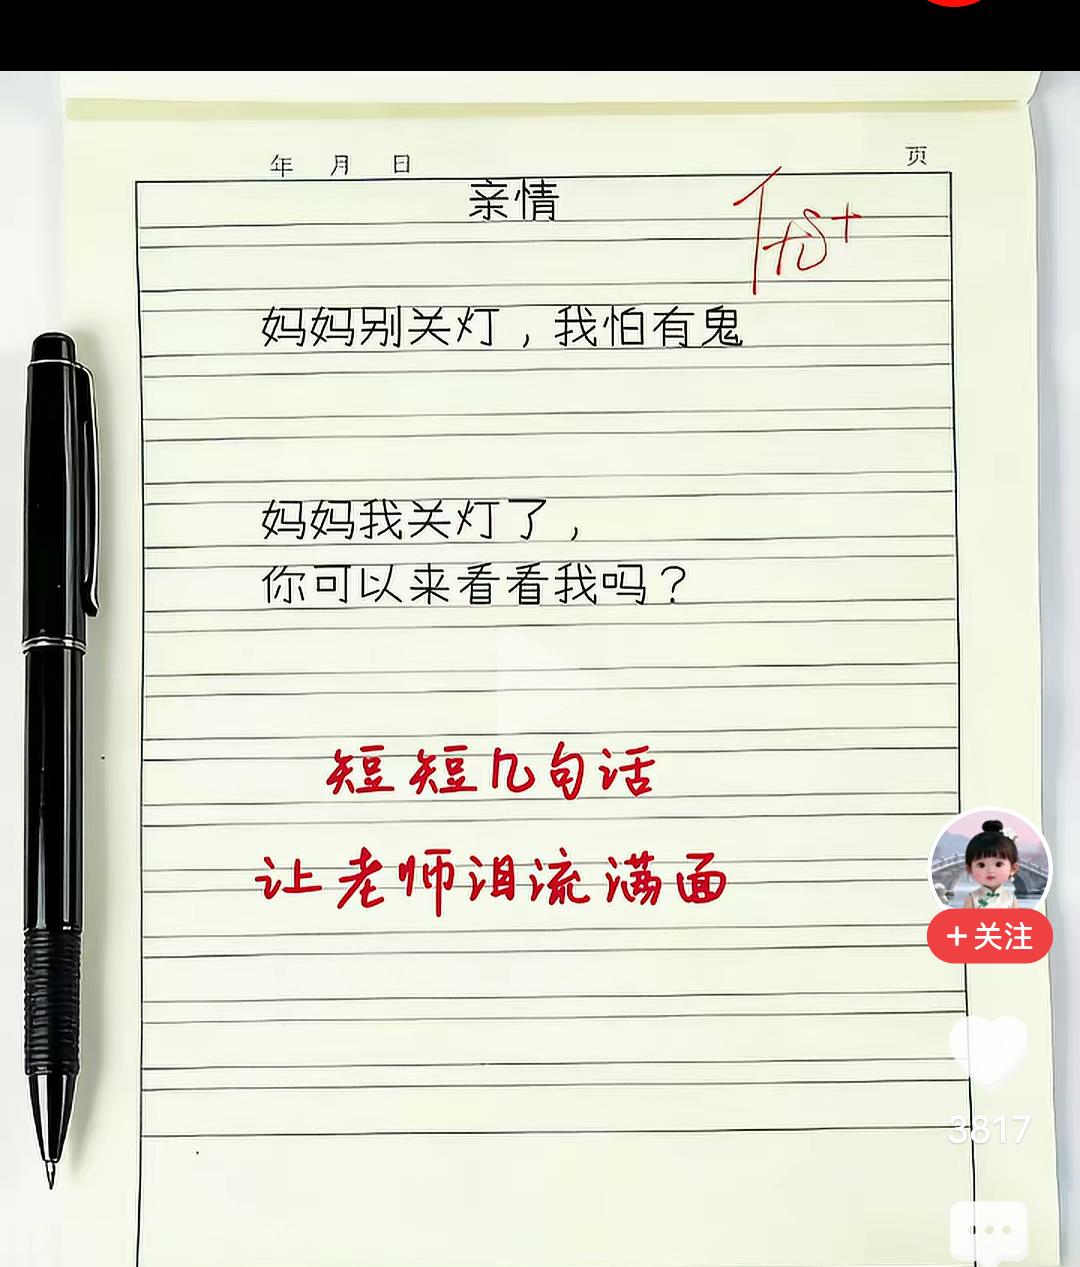 年 月 日
页
亲情
优+
妈妈别关灯，我怕有鬼
妈妈我关灯了，
你可以来看看我吗？
短短几句话
让老师泪流满面
+关注
3817